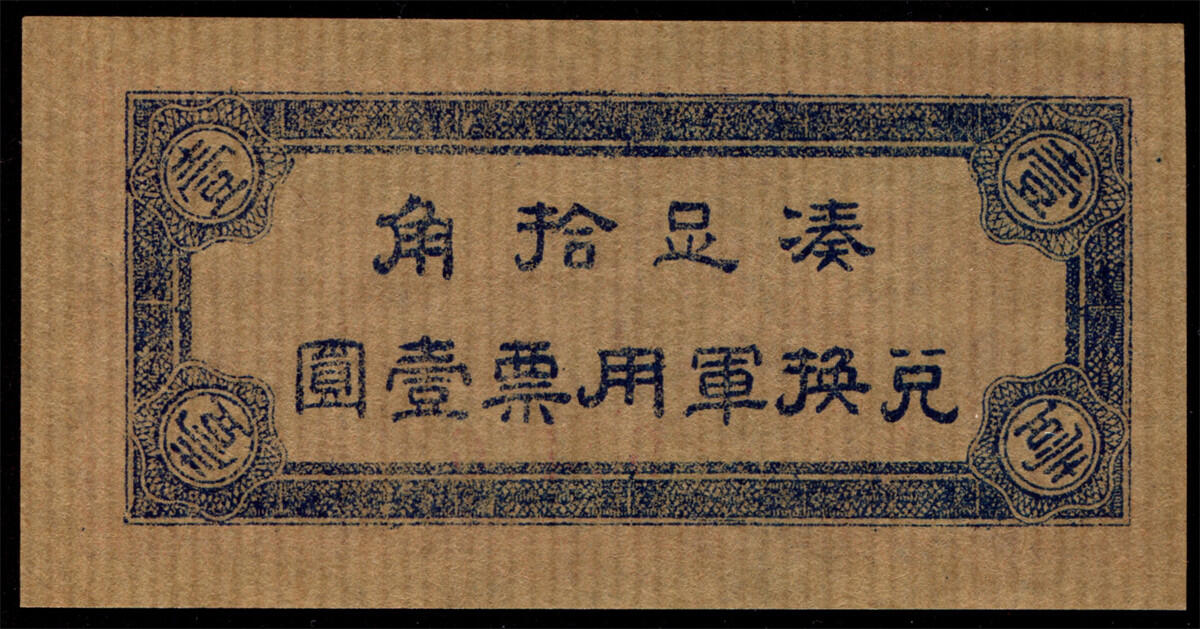 壹
壹
凑足拾角
兌換軍用票壹圓
壹
壹